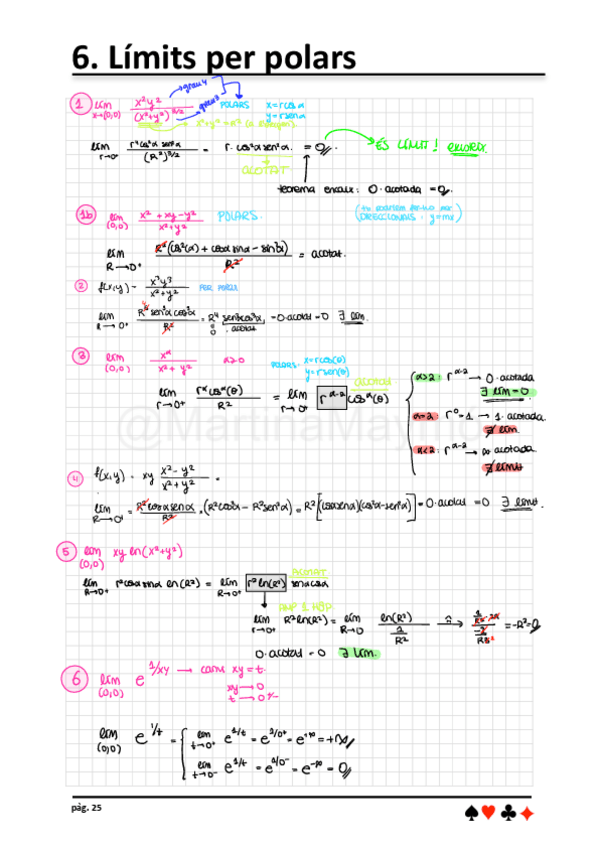 6. Límits per polars
① lím x→(0,0) x²y² / (x²+y²)^3/2 → grau 4 → grau 3 POLARS x=rcosα
y=rsenα
x²+y²=R²
lím r→0⁺ r⁴cos²α sen²α / (R²)^3/2 = r·cos²α sen²α = 0 → ÉS LÍMIT!
ACOTAT
teorema encaix: 0·acotada = 0
①b lím (0,0) x²+xy−y² / x²+y² POLARS.
DIRECCIONALS · y=mx)
lím R→0⁺ R²(cos²(α)+cosα sinα − sin²α) / R² = acotat.
② f(x,y) = x³y³ / x²+y² PER POLARS
lím R→0⁺ R⁶ sen³α cos³α / R² = R⁴ sen³cos³α = 0·acotat = 0 ∃ lím.
0 · acotat
③ lím (0,0) x^α / x²+y² α≥0 POLARS· x=rcos(θ)
y=rsen(θ)
ACOTAT
lím r→0⁺ r^α cos^α(θ) / R² = lím r→0⁺ r^α-2 cos^α(θ)
α>2: r^α-2 → 0·acotada
∃ lím=0
α=2: r⁰=1 → 1·acotada
∄ lím
α<2: r^α-2 → ∞ acotada
∄ límit
④ f(x,y) = xy x²−y² / x²+y² =
lím R→0⁺ R²cosα senα / R² · (R²cos²α − R²sen²α) = R²[(cosα senα)(cos²α−sen²α)] = 0·acotat = 0 ∃ límit.
⑤ lím (0,0) xy ln(x²+y²)
ACOTAT
lím R→0⁺ r²cosα sinα ln(R²) = lím R→0⁺ r²ln(R²) sinαcosα
lím r→0⁺ R²ln(R²) = lím R→0 ln(R²) / 1/R²
= −R²=0
0·acotat = 0 ∃ lím.
⑥ lím (0,0) e^1/xy → canvi xy=t.
xy → 0
t → 0⁺/⁻
lím (0,0) e^1/t =
lím t→0⁺ e^1/t = e^1/0⁺ = e^∞ = +∞
lím t→0⁻ e^1/t = e^1/0⁻ = e^-∞ = 0
pàg. 25